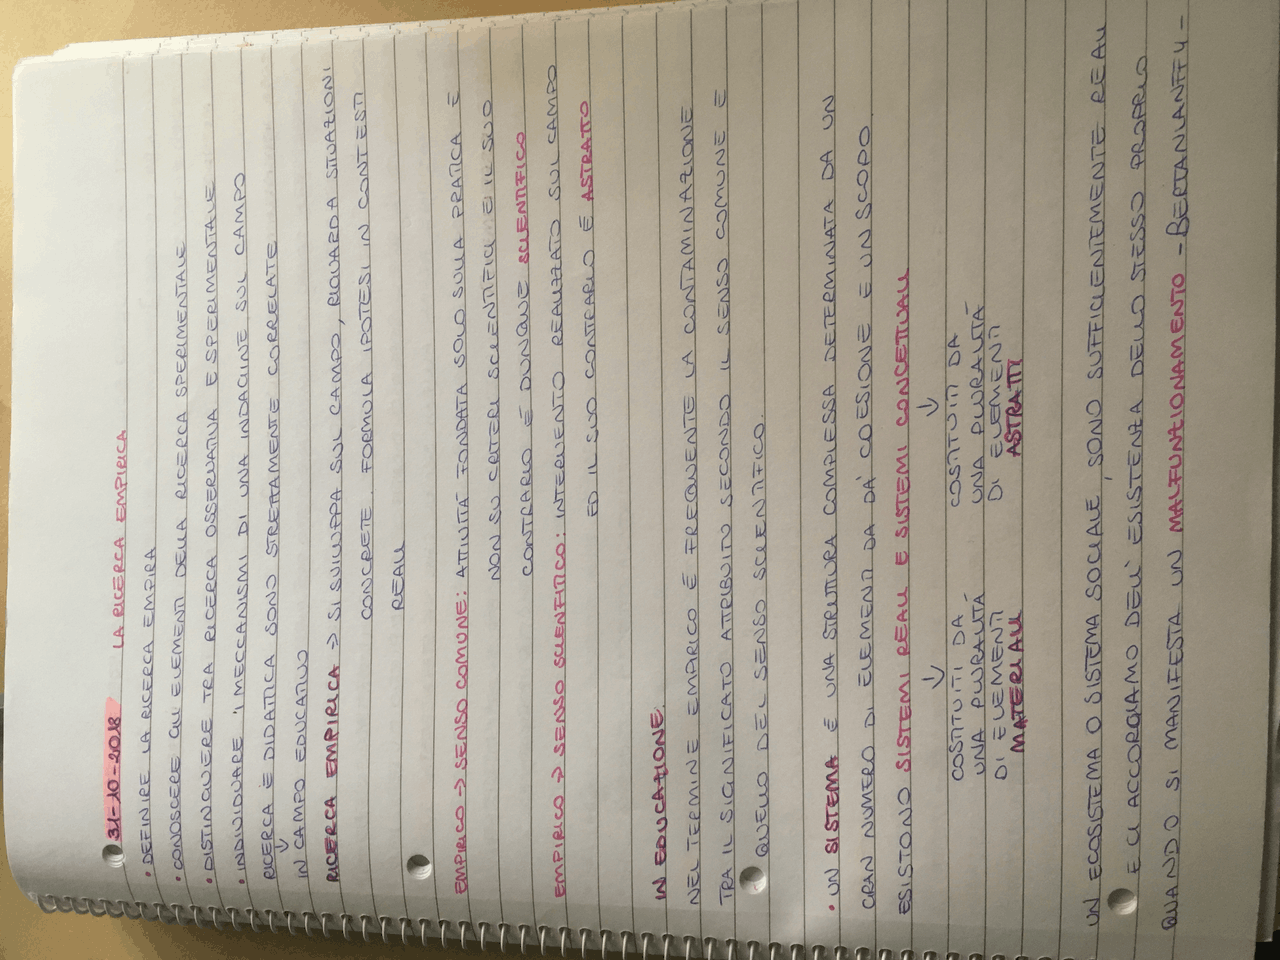 31-10-2018 LA RICERCA EMPIRICA
• DEFINIRE LA RICERCA EMPIRA
• CONOSCERE GLI ELEMENTI DELLA RICERCA SPERIMENTALE
• DISTINGUERE TRA RICERCA OSSERVATIVA E SPERIMENTALE
• INDIVIDUARE I MECCANISMI DI UNA INDAGINE SUL CAMPO
RICERCA E DIDATTICA SONO STRETTAMENTE CORRELATE
↓
IN CAMPO EDUCATIVO
RICERCA EMPIRICA → SI SVILUPPA SUL CAMPO, RIGUARDA SITUAZIONI
CONCRETE. FORMULA IPOTESI IN CONTESTI
REALI
EMPIRICO → SENSO COMUNE: ATTIVITÀ FONDATA SOLO SULLA PRATICA E
NON SU CRITERI SCIENTIFICI E IL SUO
CONTRARIO È DUNQUE SCIENTIFICO
EMPIRICO → SENSO SCIENTIFICO: INTERVENTO REALIZZATO SUL CAMPO
ED IL SUO CONTRARIO È ASTRATTO
IN EDUCAZIONE:
NEL TERMINE EMPIRICO È FREQUENTE LA CONTAMINAZIONE
TRA IL SIGNIFICATO ATTRIBUITO SECONDO IL SENSO COMUNE E
QUELLO DEL SENSO SCIENTIFICO.
• UN SISTEMA È UNA STRUTTURA COMPLESSA DETERMINATA DA UN
GRAN NUMERO DI ELEMENTI DA DÀ COESIONE E UN SCOPO.
ESISTONO SISTEMI REALI E SISTEMI CONCETTUALI
↓ ↓
COSTITUITI DA COSTITUITI DA
UNA PLURALITÀ UNA PLURALITÀ
DI ELEMENTI DI ELEMENTI
MATERIALI ASTRATTI
UN ECOSISTEMA O SISTEMA SOCIALE, SONO SUFFICIENTEMENTE REALI
E CI ACCORGIAMO DELL' ESISTENZA DELLO STESSO PROPRIO
QUANDO SI MANIFESTA UN MALFUNZIONAMENTO - BERTANLANFFY -